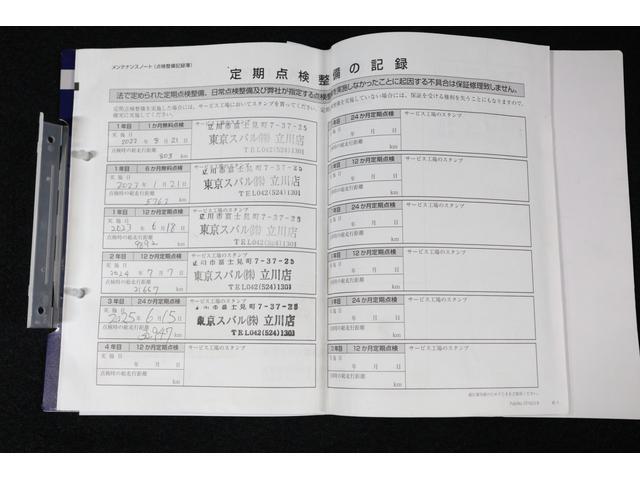 メンテナンスノート（点検整備記録簿）
定期点検整備の記録
法で定められた定期点検整備、日常点検整備及び弊社が指定する点検整
を実施しなかったことに起因する不具合は保証修理致しません。
定期点検整備を実施した場合には、サービス工場においてスタンプを貰ってください。
確実に実施してください。
実施していない場合には、保証を受ける権利を失うことにもなりますので、
1年目 1か月無料点検
サービス工場のスタンプ
実施日
2022年8月21日
点検時の総走行距離
803 km
立川市富士見町7-37-25
東京スバル㈱ 立川店
TEL042(524)1301
1年目 6か月無料点検
サービス工場のスタンプ
実施日
2023年1月21日
点検時の総走行距離
km
立川市富士見町7-37-25
東京スバル㈱ 立川店
TEL042(524)1301
1年目 12か月定期点検
サービス工場のスタンプ
実施日
2023年6月18日
点検時の総走行距離
9892 km
立川市富士見町7-37-25
東京スバル㈱ 立川店
TEL042(524)1301
2年目 12か月定期点検
サービス工場のスタンプ
実施日
2024年7月7日
点検時の総走行距離
21667 km
立川市富士見町7-37-25
東京スバル㈱ 立川店
TEL042(524)1301
3年目 24か月定期点検
サービス工場のスタンプ
実施日
2025年6月15日
点検時の総走行距離
km
立川市富士見町7-37-25
東京スバル㈱ 立川店
TEL042(524)1301
4年目 12か月定期点検
サービス工場のスタンプ
実施日
年 月 日
点検時の総走行距離
km
年目 24か月定期点検
サービス工場のスタンプ
実施日
年 月 日
点検時の総走行距離
km
年目 12か月定期点検
サービス工場のスタンプ
実施日
年 月 日
点検時の総走行距離
km
年目 24か月定期点検
サービス工場のスタンプ
実施日
年 月 日
点検時の総走行距離
km
年目 12か月定期点検
サービス工場のスタンプ
実施日
年 月 日
点検時の総走行距離
km
年目 24か月定期点検
サービス工場のスタンプ
実施日
年 月 日
点検時の総走行距離
km
年目 12か月定期点検
サービス工場のスタンプ
実施日
年 月 日
点検時の総走行距離
km